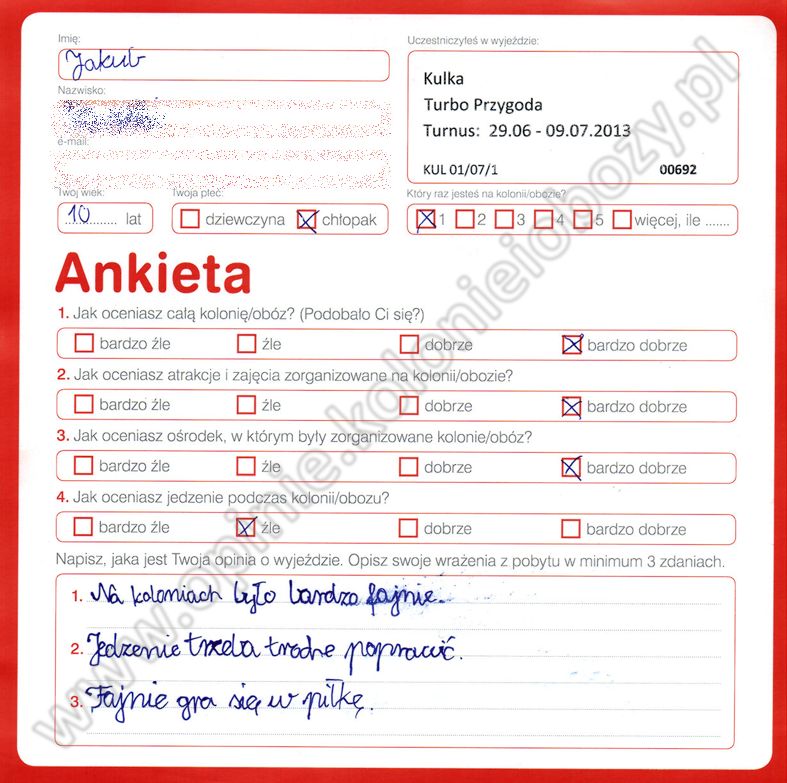 Imię:
Jakub
Nazwisko:
e-mail:
Twój wiek:
10 lat
Twoja płeć:
dziewczyna chłopak
Uczestniczyłeś w wyjeździe:
Kulka
Turbo Przygoda
Turnus: 29.06 - 09.07.2013
KUL 01/07/1 00692
Który raz jesteś na kolonii/obozie?
1 2 3 4 5 więcej, ile .......
Ankieta
1. Jak oceniasz całą kolonię/obóz? (Podobało Ci się?)
bardzo źle źle dobrze bardzo dobrze
2. Jak oceniasz atrakcje i zajęcia zorganizowane na kolonii/obozie?
bardzo źle źle dobrze bardzo dobrze
3. Jak oceniasz ośrodek, w którym były zorganizowane kolonie/obóz?
bardzo źle źle dobrze bardzo dobrze
4. Jak oceniasz jedzenie podczas kolonii/obozu?
bardzo źle źle dobrze bardzo dobrze
Napisz, jaka jest Twoja opinia o wyjeździe. Opisz swoje wrażenia z pobytu w minimum 3 zdaniach.
1. Na koloniach było bardzo fajnie.
2. Jedzenie trzeba trodne poprawić.
3. Fajnie gra się w piłkę.
www.opinie.kolonieiobozy.pl